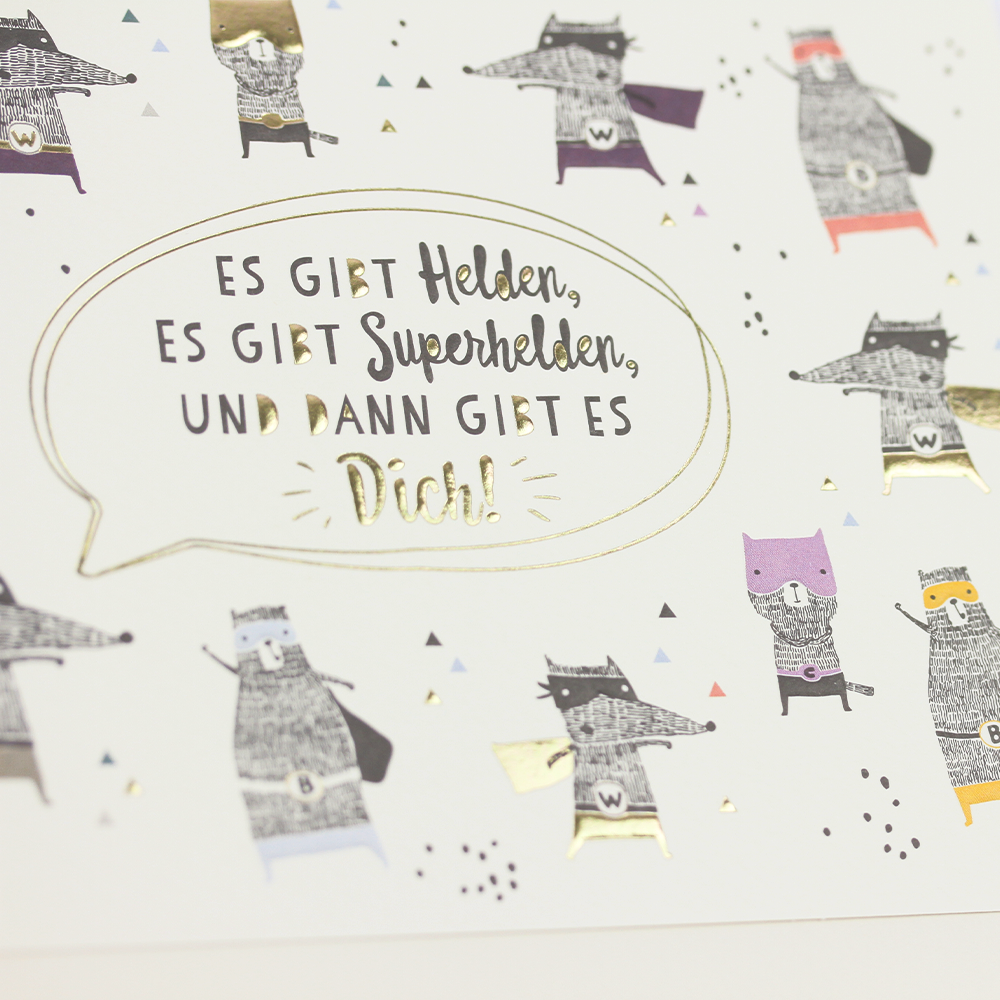 W
W
B
ES GIBT Helden,
ES GIBT Superhelden,
UND DANN GIBT ES
Dich!
W
C
B
B
W